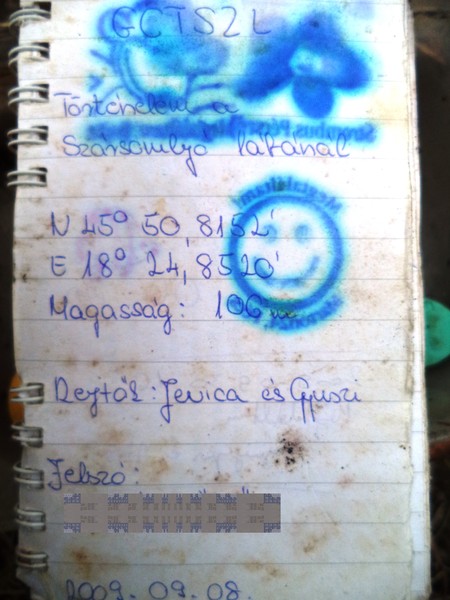 GCTSZL
Történelem a
Szársomlyó lábánál
N 45° 50,8152'
E 18° 24,8520'
Magasság: 106 m
Rejtők: Jevica és Gyuszi
Jelszó:
2009. 09. 08.